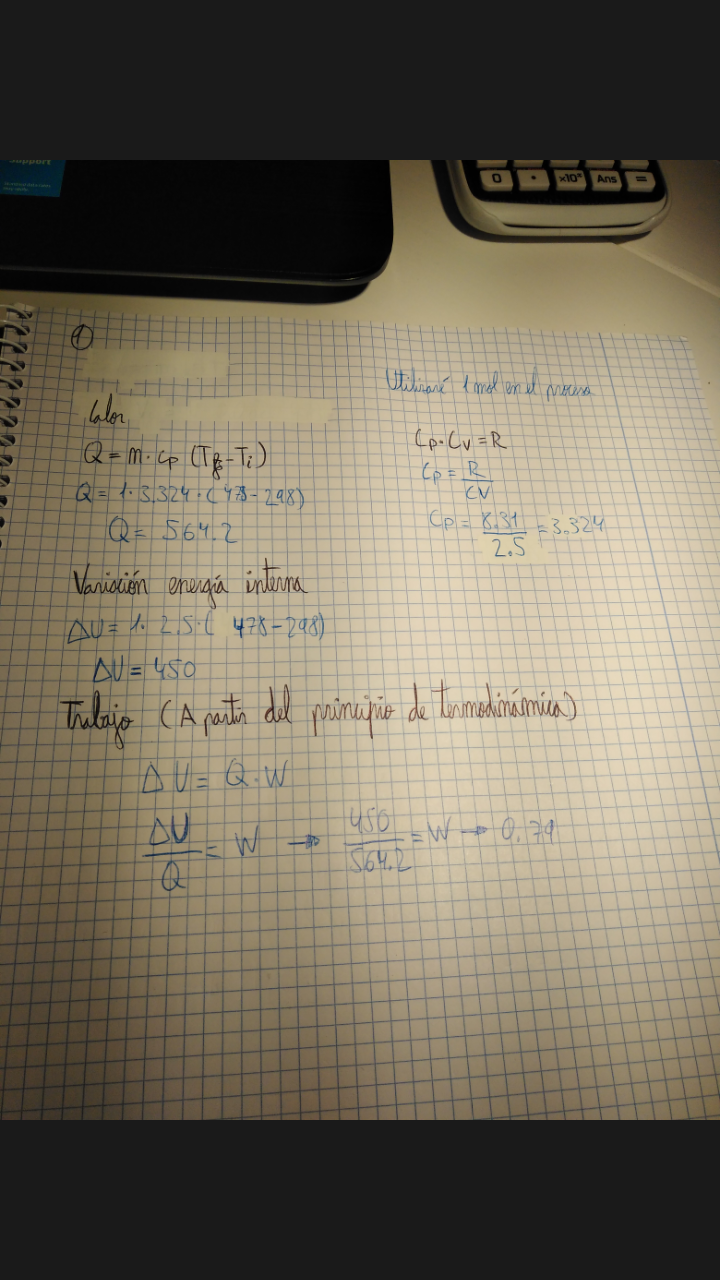 Support
0 • ×10ˣ Ans =
1
Utilizaré 1 mol en el proceso
Calor
Q = m · cp (Tf - Ti)
Q = 1 · 3.324 · (478 - 298)
Q = 564.2
Cp · Cv = R
Cp = R / CV
Cp = 8.31 / 2.5 = 3.324
Variación energía interna
ΔU = 1 · 2.5 · ( 478 - 298)
ΔU = 450
Trabajo (A partir del principio de termodinámica)
ΔU = Q · W
ΔU / Q = W → 450 / 564.2 = W → 0.79